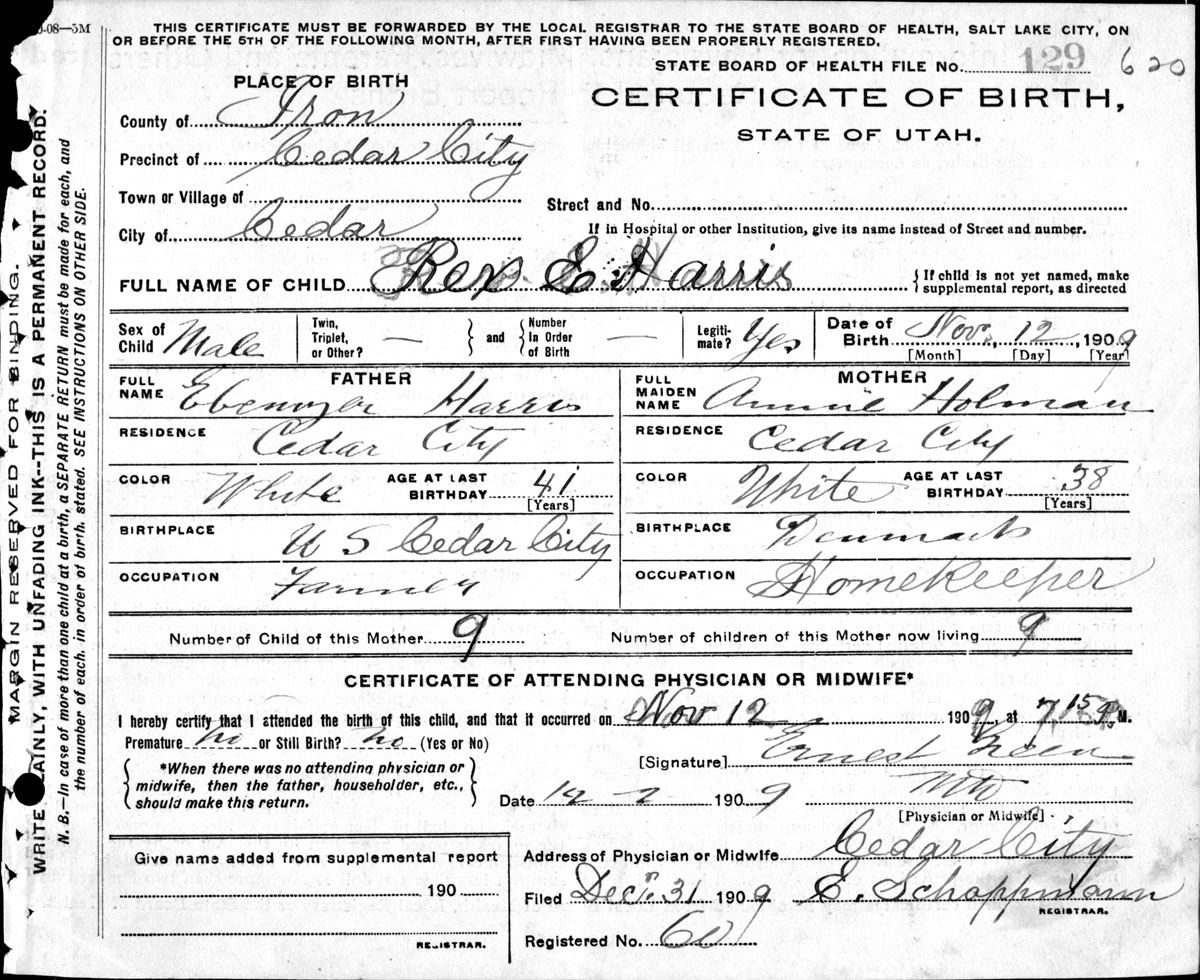 0-08—5M
THIS CERTIFICATE MUST BE FORWARDED BY THE LOCAL REGISTRAR TO THE STATE BOARD OF HEALTH, SALT LAKE CITY, ON
OR BEFORE THE 5TH OF THE FOLLOWING MONTH, AFTER FIRST HAVING BEEN PROPERLY REGISTERED.
STATE BOARD OF HEALTH FILE NO. 129 620
PLACE OF BIRTH
CERTIFICATE OF BIRTH,
STATE OF UTAH.
County of Iron
Precinct of Cedar City
Town or Village of
Street and No.
City of Cedar
If in Hospital or other Institution, give its name instead of Street and number.
FULL NAME OF CHILD Rex E. Harris
{ If child is not yet named, make
supplemental report, as directed
Sex of Child Male
Twin, Triplet, or Other? — } and { Number In Order of Birth —
Legiti-mate? Yes
Date of Birth Nov. 12, 1909
[Month] [Day] [Year]
FATHER
FULL NAME Ebenezer Harris
RESIDENCE Cedar City
COLOR White AGE AT LAST BIRTHDAY 41
[Years]
BIRTHPLACE U S Cedar City
OCCUPATION Farmer
MOTHER
FULL MAIDEN NAME Annie Holman
RESIDENCE Cedar City
COLOR White AGE AT LAST BIRTHDAY 38
[Years]
BIRTHPLACE Denmark
OCCUPATION Homekeeper
Number of Child of this Mother 9 Number of children of this Mother now living 9
CERTIFICATE OF ATTENDING PHYSICIAN OR MIDWIFE*
I hereby certify that I attended the birth of this child, and that it occurred on Nov 12 1909, at 7 15 P. M.
Premature no or Still Birth? no (Yes or No)
[Signature] Ernest Green
{ *When there was no attending physician or
midwife, then the father, householder, etc.,
should make this return. }
Date 12 2 1909 MD
[Physician or Midwife]
Give name added from supplemental report
190
REGISTRAR.
Address of Physician or Midwife Cedar City
Filed Dec. 31 1909 E. Schoppmann
REGISTRAR.
Registered No. 60
MARGIN RESERVED FOR BINDING.
WRITE PLAINLY, WITH UNFADING INK--THIS IS A PERMANENT RECORD.
N. B.—In case of more than one child at a birth, a SEPARATE RETURN must be made for each, and
the number of each. in order of birth. stated. SEE INSTRUCTIONS ON OTHER SIDE.